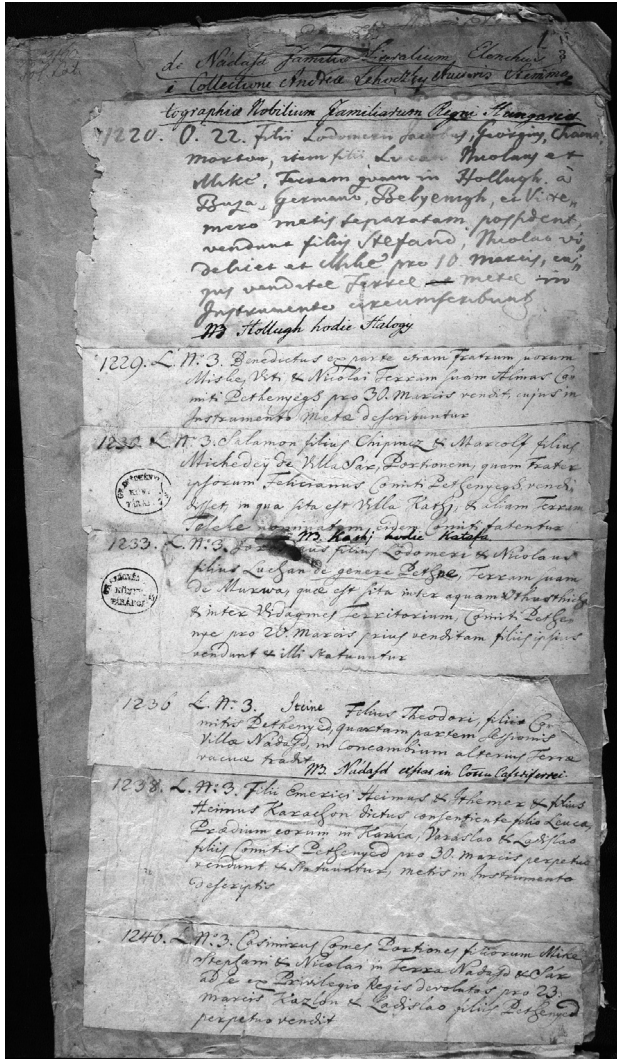 de Nádasd Familiæ Elenchus
e Collectione Andreæ Lehoczky Auctoris Stemma
tographiæ Nobilium Familiarum Regni Hungariæ
1220. O. 22. Filii Lodomerii Jacobus, Georgius, Chaena,
mortov, item filii Lucan Nicolaus et
Mike, Terram quam in Hollugh, a
Busa, Germano, Bebyenigh, et
mero metis separatam possident,
vendunt filiis Stefani, Nicolao vi„
delicet et Mike pro 10 marcis, cu„
jus venditæ Terræ metæ in
Instrumento circumscribunt
NB Hollugh hodie Halogy
1229. L. Nº 3. Benedictus ex parte etiam Fratrum suorum
Miske, Viti & Nicolai Terram suam Almas Co„
miti Pethenyegh pro 30. Marcis vendit, cujus in
Instrumento Metæ describuntur
1230. L. Nº 3. Salamon filius Chipinez & Marcolf filius
Michedey de Villa Sar, Portionem, quam Frater
ipsorum Felicianus Comiti Pethenyegh vendi„
disset, in qua sita est Villa Katsy, & aliam Terram
nominatam eidem Comiti fatentur
NB Kachj hodie Katafa
1233. L. Nº 3. filius Lodomeri & Nicolaus
filius Luchan de genere Pethne, Terram suam
de Murwa, quæ est sita inter aquam
& inter Vidagmes Territorium, Comiti Pethen„
nye pro 20. Marcis prius venditam filiis ipsius
vendunt & illi statuuntur
1236 L. Nº 3. Steine Filius Theodori, filiis Co„
mitis Pethenyed, quartam partem Sessionis
Villæ Nadasd, in concambium alterius Terræ
vacuæ tradit
NB Nadasd expas in Cottu Castriferrei
1238. L. Nº 3. Filii Emerici Heimus & Ithemer & filius
Heimus Karachon dictus consentiente filio Leuca,
Prædium eorum in Karka, Varaslao & Ladislao
filiis Comitis Pethenyed pro 30. marcis perpetue
vendunt & Statuuntur, metis in Instrumento
descriptis
1246. L. Nº 3. Casimirus Comes Portiones filiorum Mike
Stephani & Nicolai in Terra Nadasd & Sar
ad se ex Privilegio Regis devolutas pro 23.
marcis Kazlou & Ladislao filiis Pethenyed
perpetuo vendit